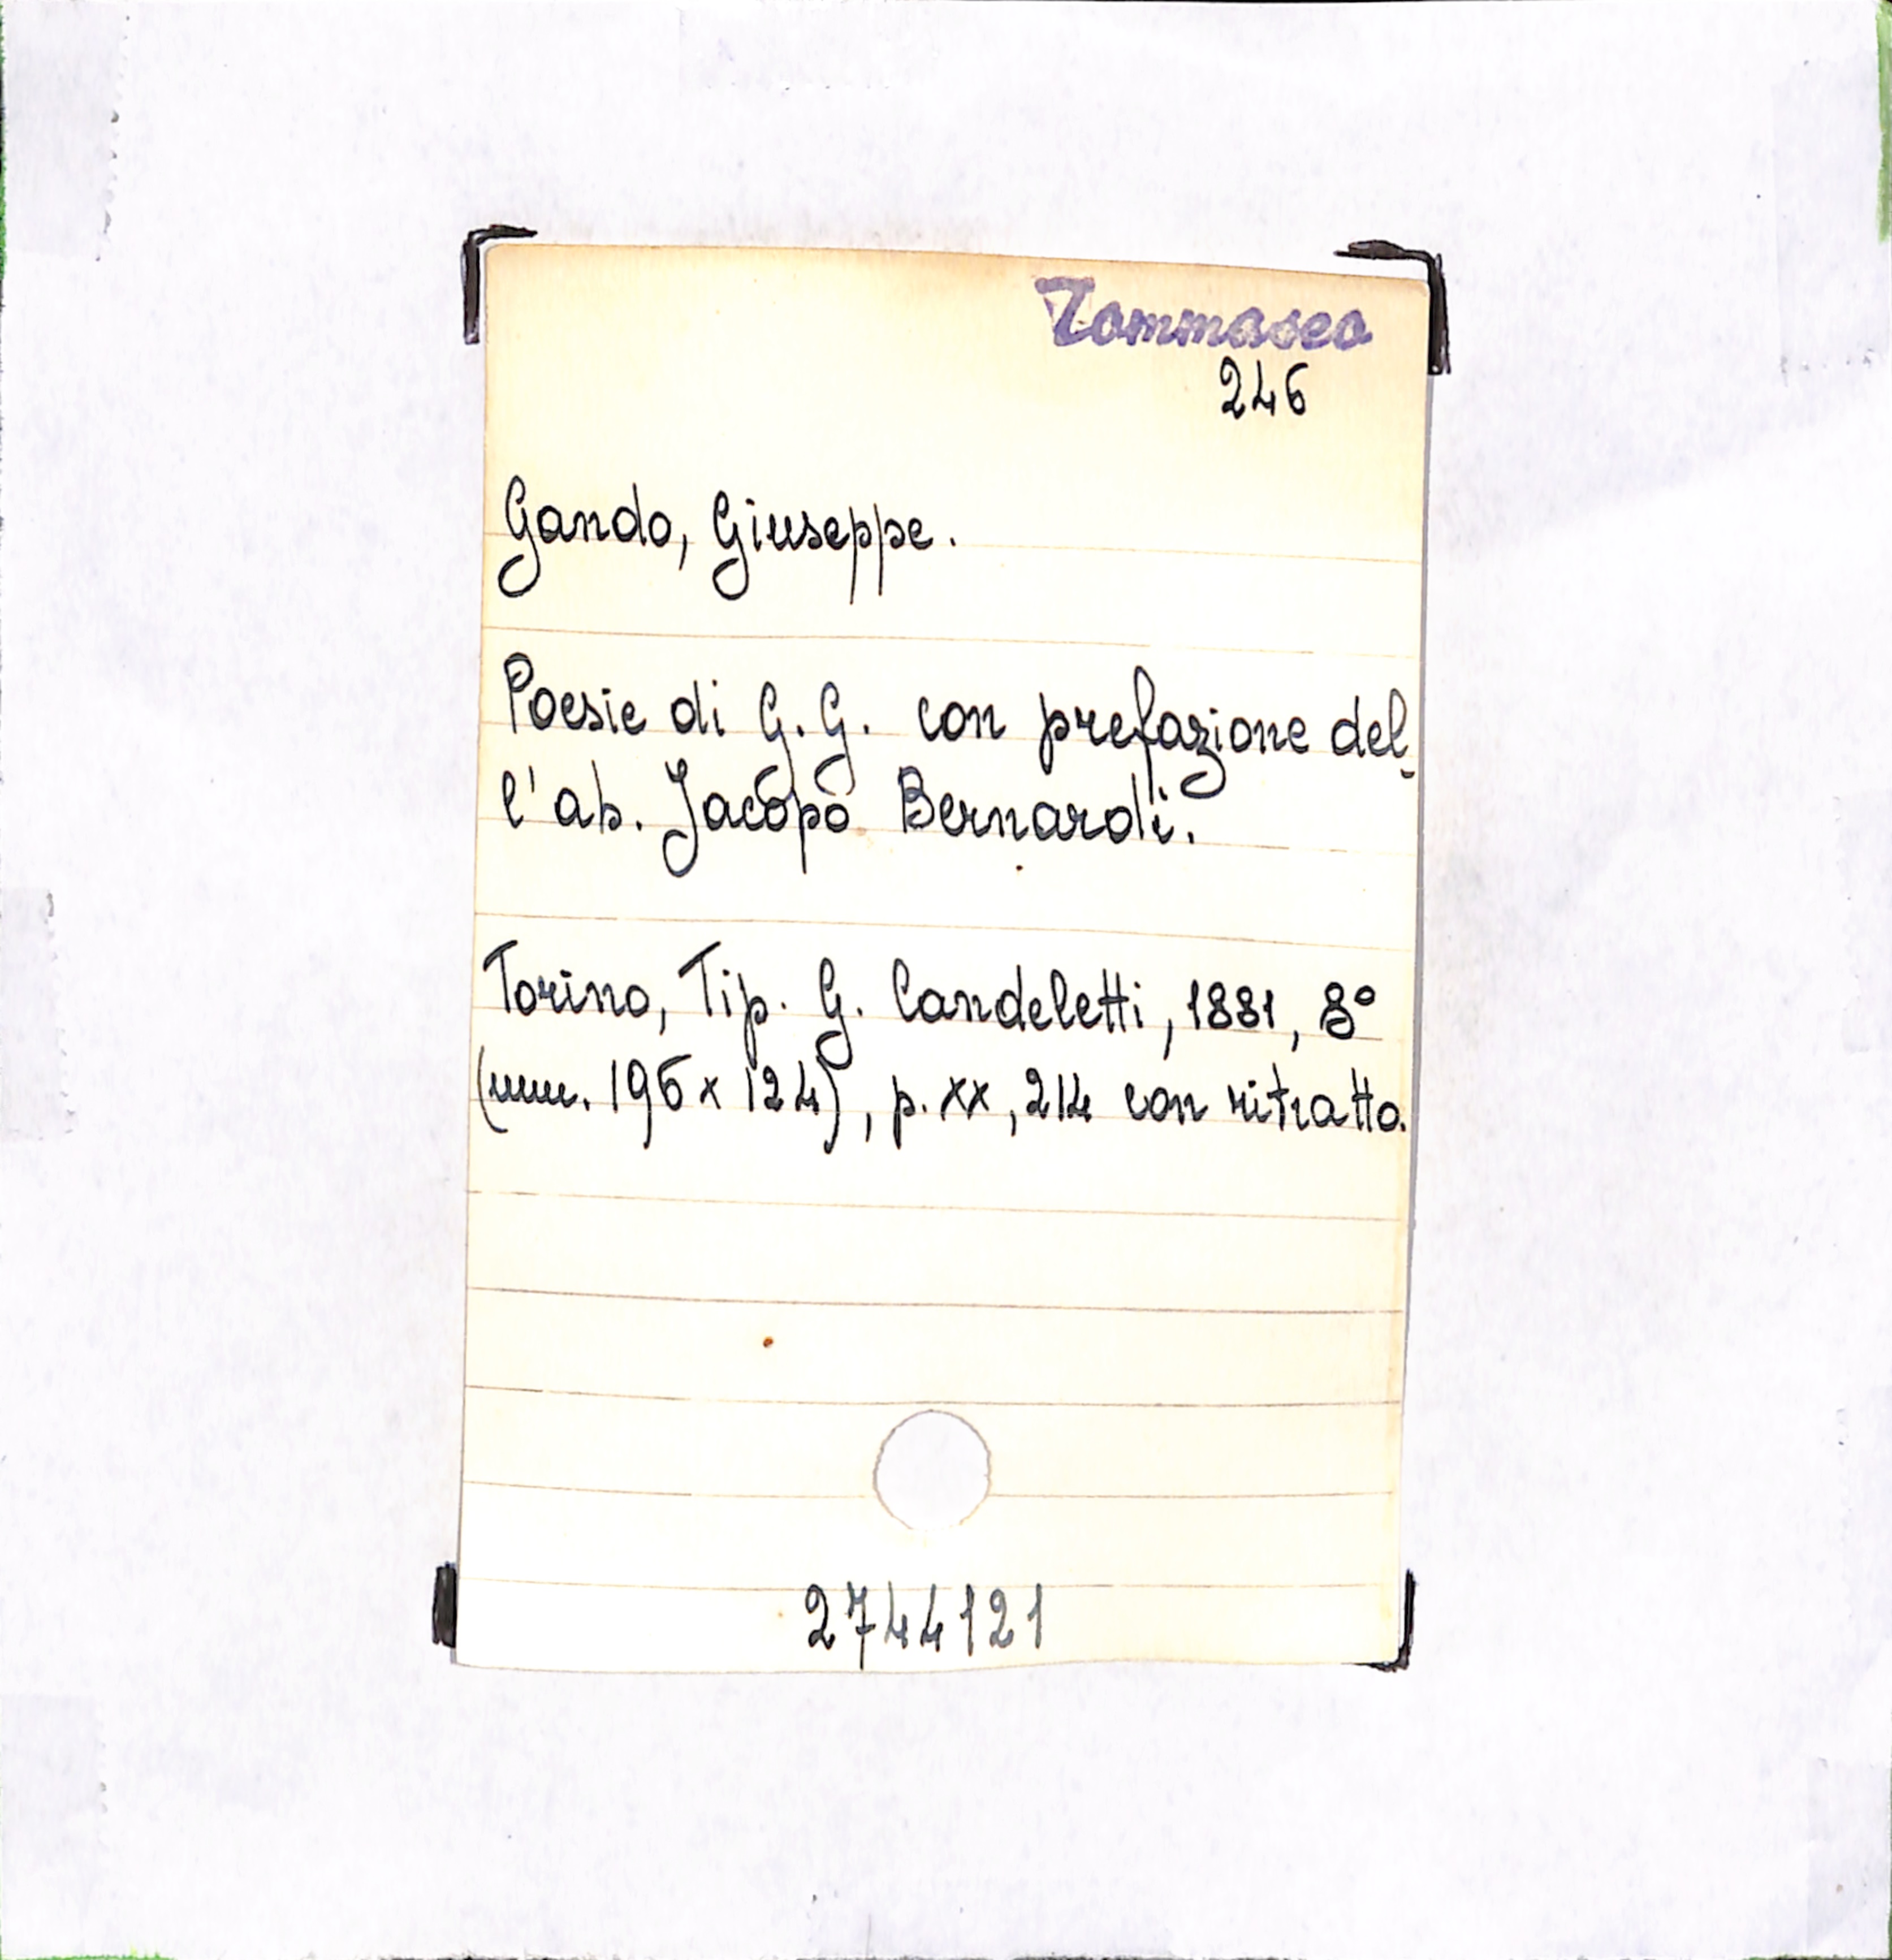 Tommaseo
246
Gando, Giuseppe.
Poesie di G. G. con prefazione del-
l'ab. Jacopo Bernardi.
Torino, Tip. G. Candeletti, 1881, 8°
(mm. 196 x 124), p. xx, 214 con ritratto.
2744121